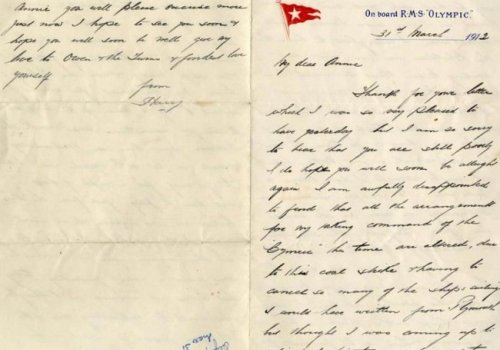 Annie you will please excuse more
just now I hope to see you soon &
hope you will soon be well give my
love to Owen & the Twins & fondest love
yourself
from
Harry
On board R.M.S. "OLYMPIC."
31st March 1912
My dear Annie
Thanks for your letter
which I was so very pleased to
have yesterday but I am so sorry
to hear that you are still poorly
I do hope you will soon be allright
again I am awfully disappointed
to find that all the arrangements
for my taking command of the
Cymric this time are altered, due
to this coal strike & having to
cancel so many of the ships sailing
I would have written from Plymouth
but thought I was coming up to